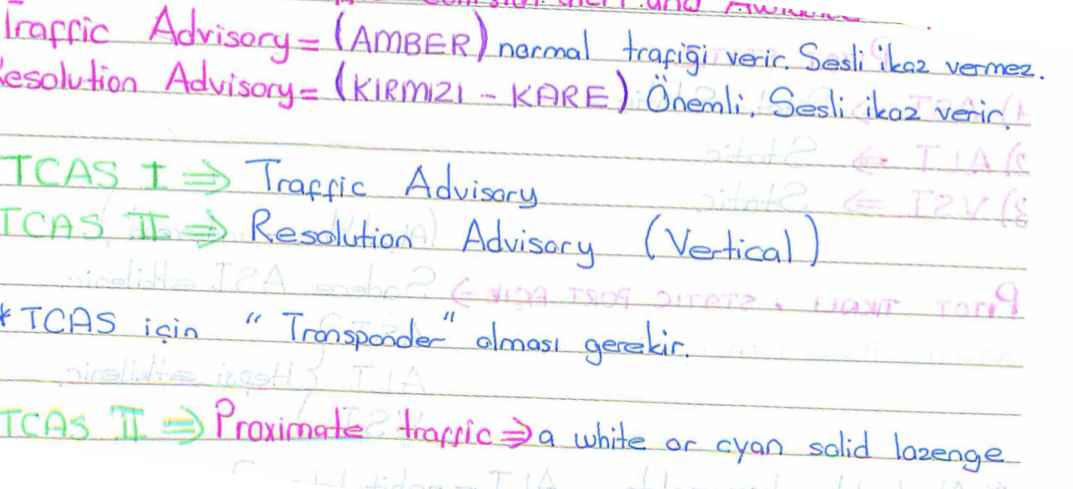 Traffic Advisory = (AMBER) normal trafiği verir. Sesli ikaz vermez.
Resolution Advisory = (KIRMIZI - KARE) Önemli. Sesli ikaz verir.
TCAS I ⇒ Traffic Advisory
TCAS II ⇒ Resolution Advisory (Vertical)
* TCAS için "Transponder" olması gerekir.
TCAS II ⇒ Proximate traffic ⇒ a white or cyan solid lozenge